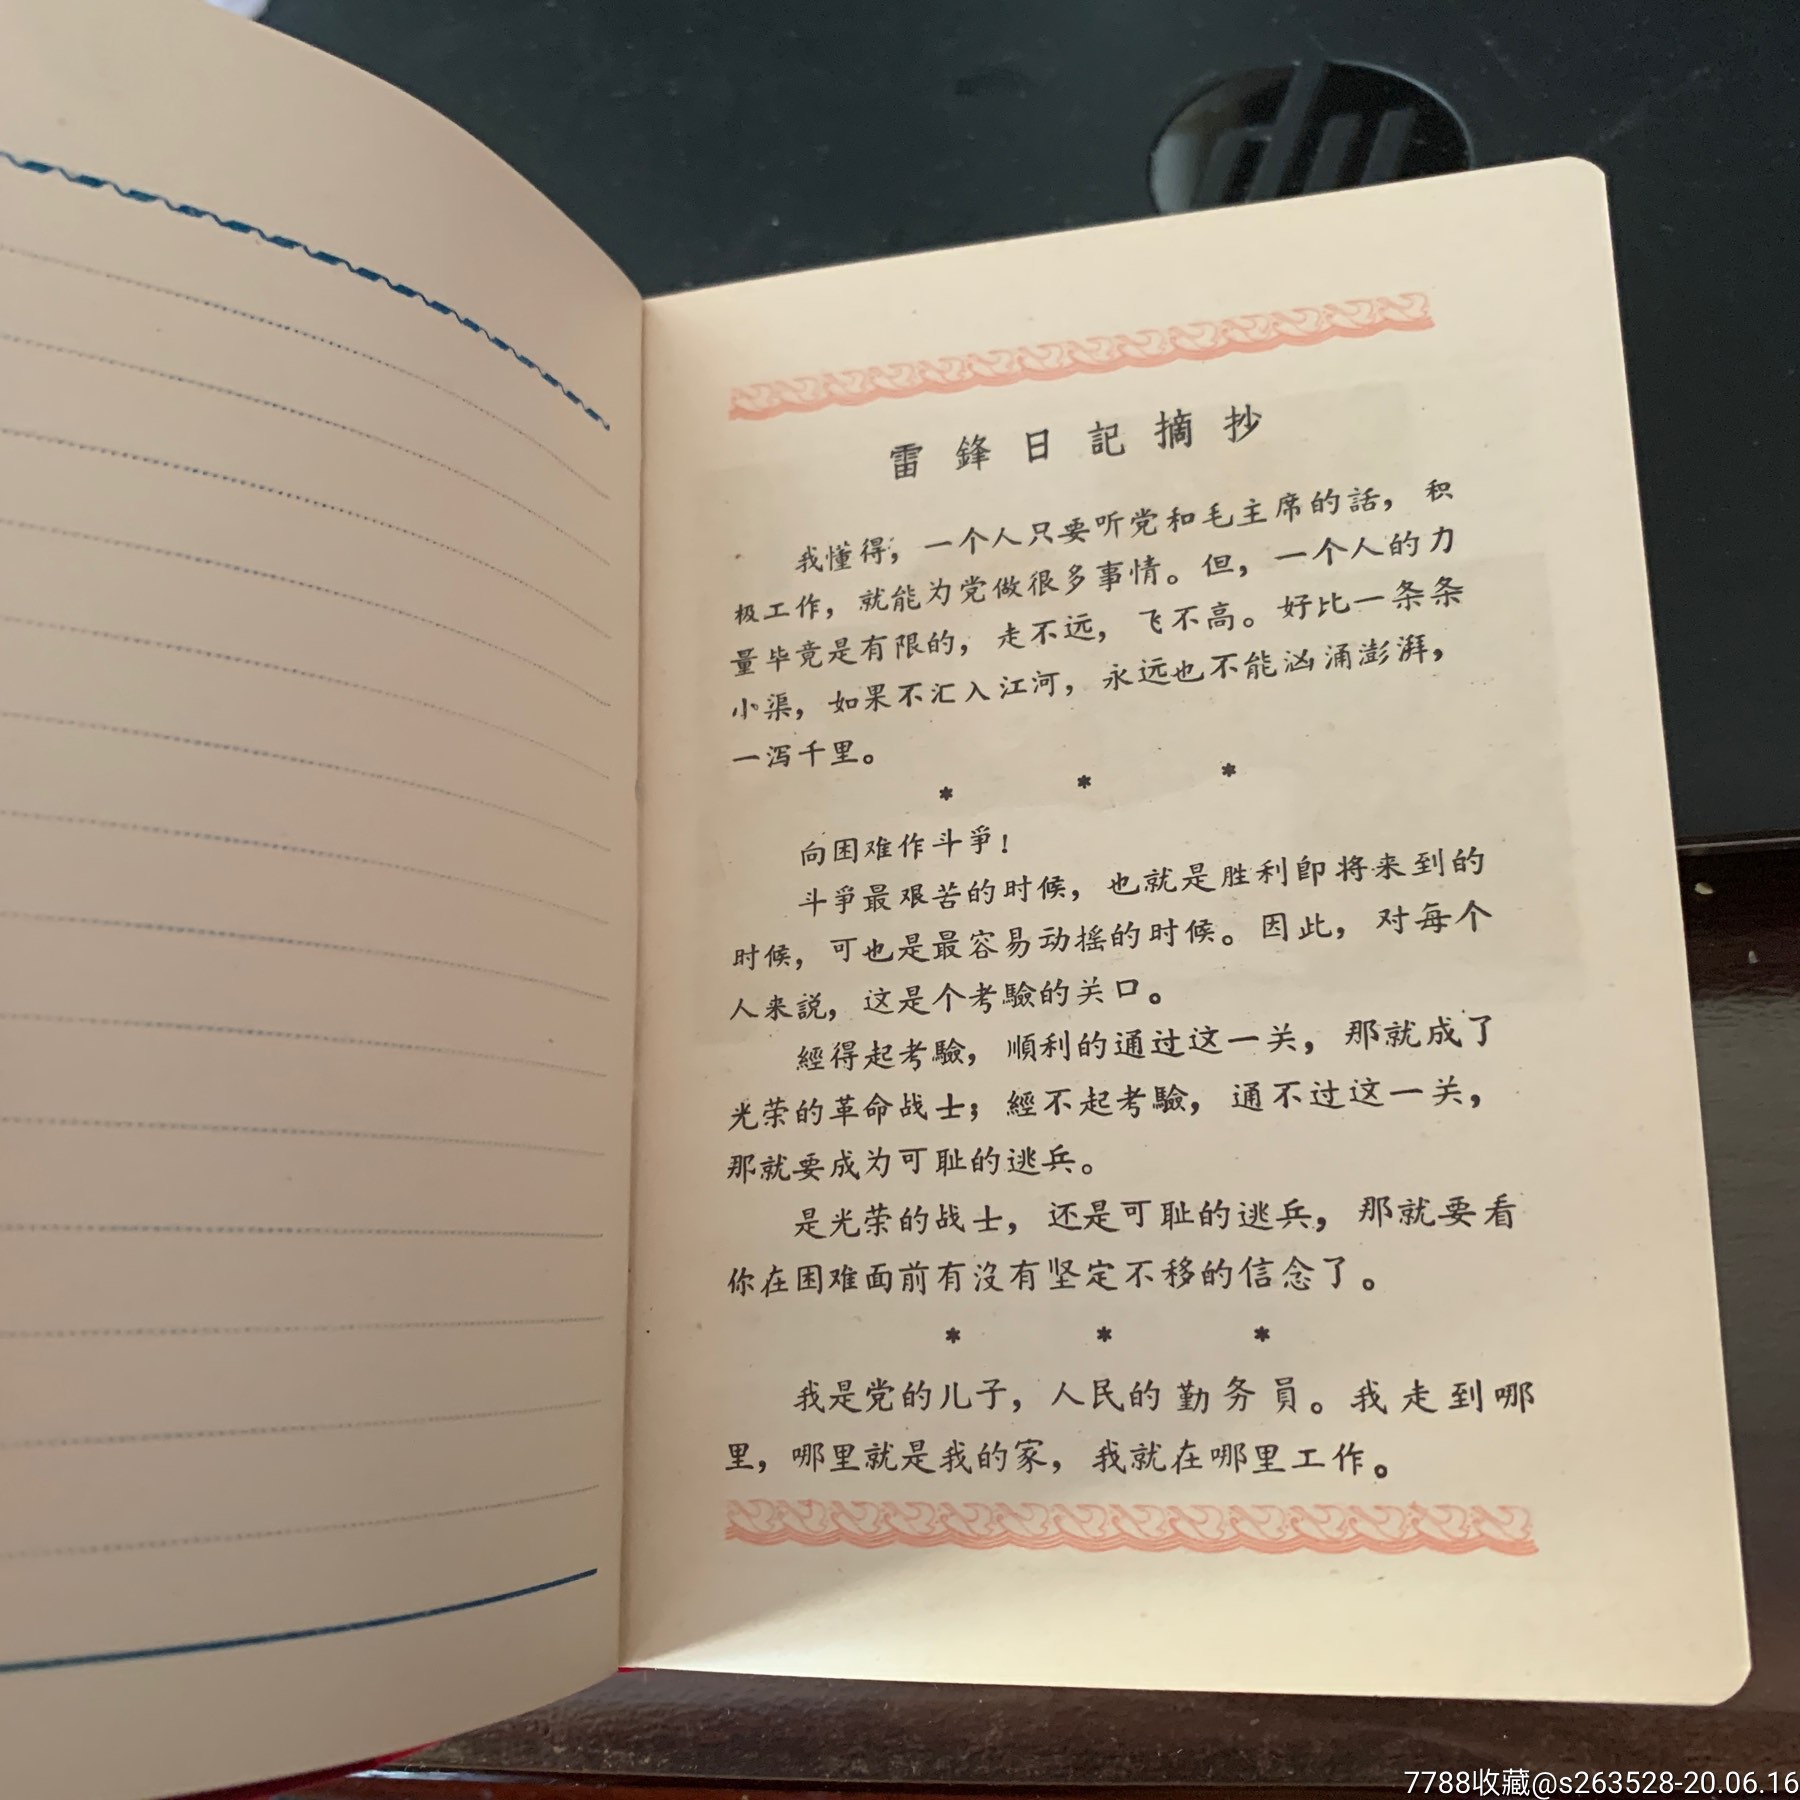 hp
雷鋒日記摘抄
我懂得，一个人只要听党和毛主席的話，积
极工作，就能为党做很多事情。但，一个人的力
量毕竟是有限的，走不远，飞不高。好比一条条
小渠，如果不汇入江河，永远也不能汹涌澎湃，
一泻千里。
* * *
向困难作斗爭！
斗爭最艰苦的时候，也就是胜利卽将来到的
时候，可也是最容易动摇的时候。因此，对每个
人来説，这是个考驗的关口。
經得起考驗，順利的通过这一关，那就成了
光荣的革命战士；經不起考驗，通不过这一关，
那就要成为可耻的逃兵。
是光荣的战士，还是可耻的逃兵，那就要看
你在困难面前有沒有坚定不移的信念了。
* * *
我是党的儿子，人民的勤务員。我走到哪
里，哪里就是我的家，我就在哪里工作。
7788收藏@s263528-20.06.16